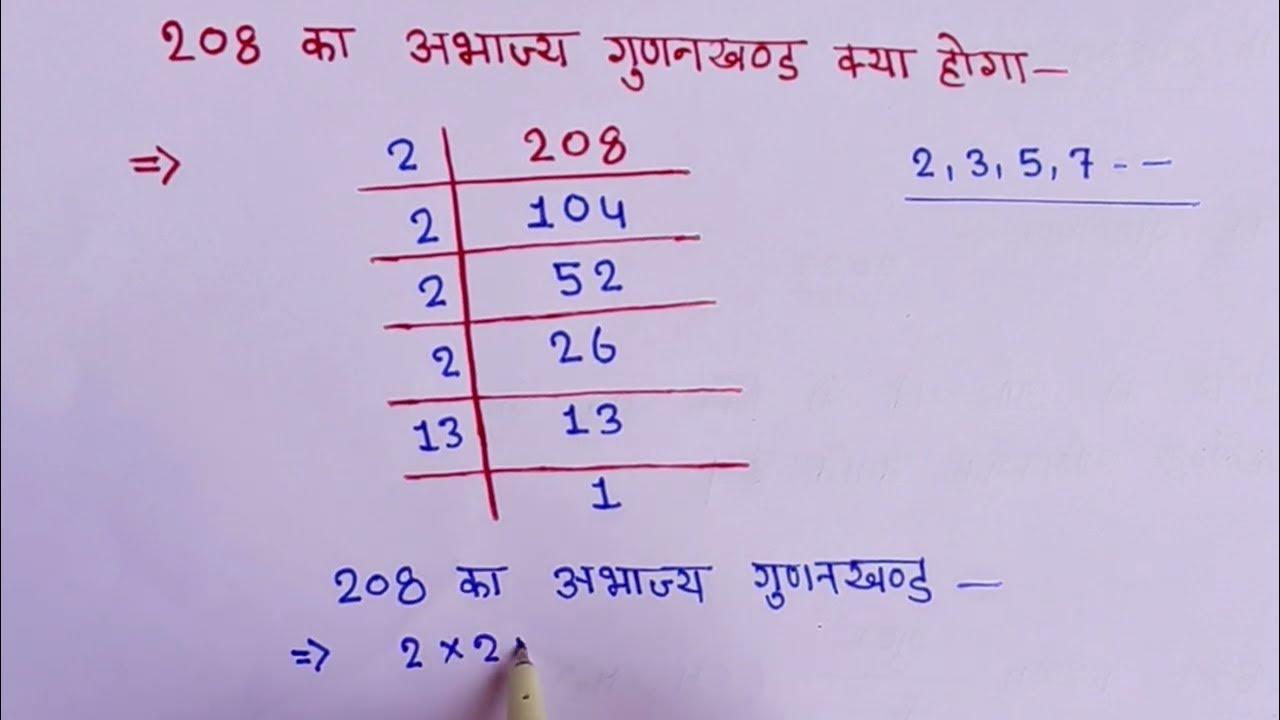 208 का अभाज्य गुणनखण्ड क्या होगा—
⇒ 2 | 208
2, 3, 5, 7 - —
2 | 104
2 | 52
2 | 26
13 | 13
1
208 का अभाज्य गुणनखण्ड —
⇒ 2 × 2